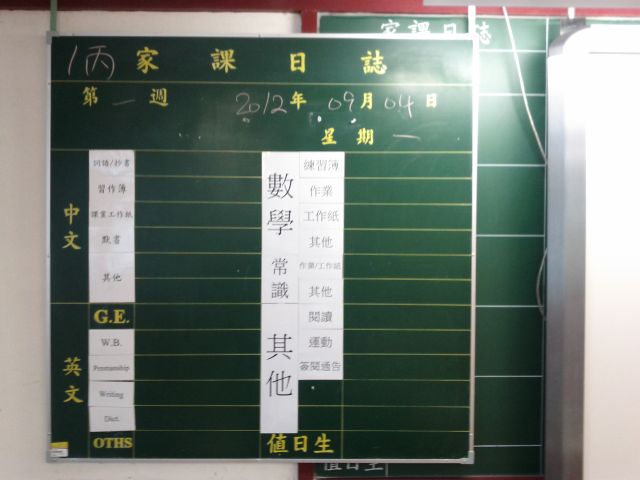 1丙 家課日誌
第一週 2012年09月04日
星期一
中文
詞語/抄書
習作簿
課業工作紙
默書
其他
英文
G.E.
W.B.
Penmanship
Writing
Dict.
OTHS
數學
練習簿
作業
工作紙
其他
常識
作業/工作紙
其他
其他
閱讀
運動
簽閱通告
值日生
家課日誌
值日生